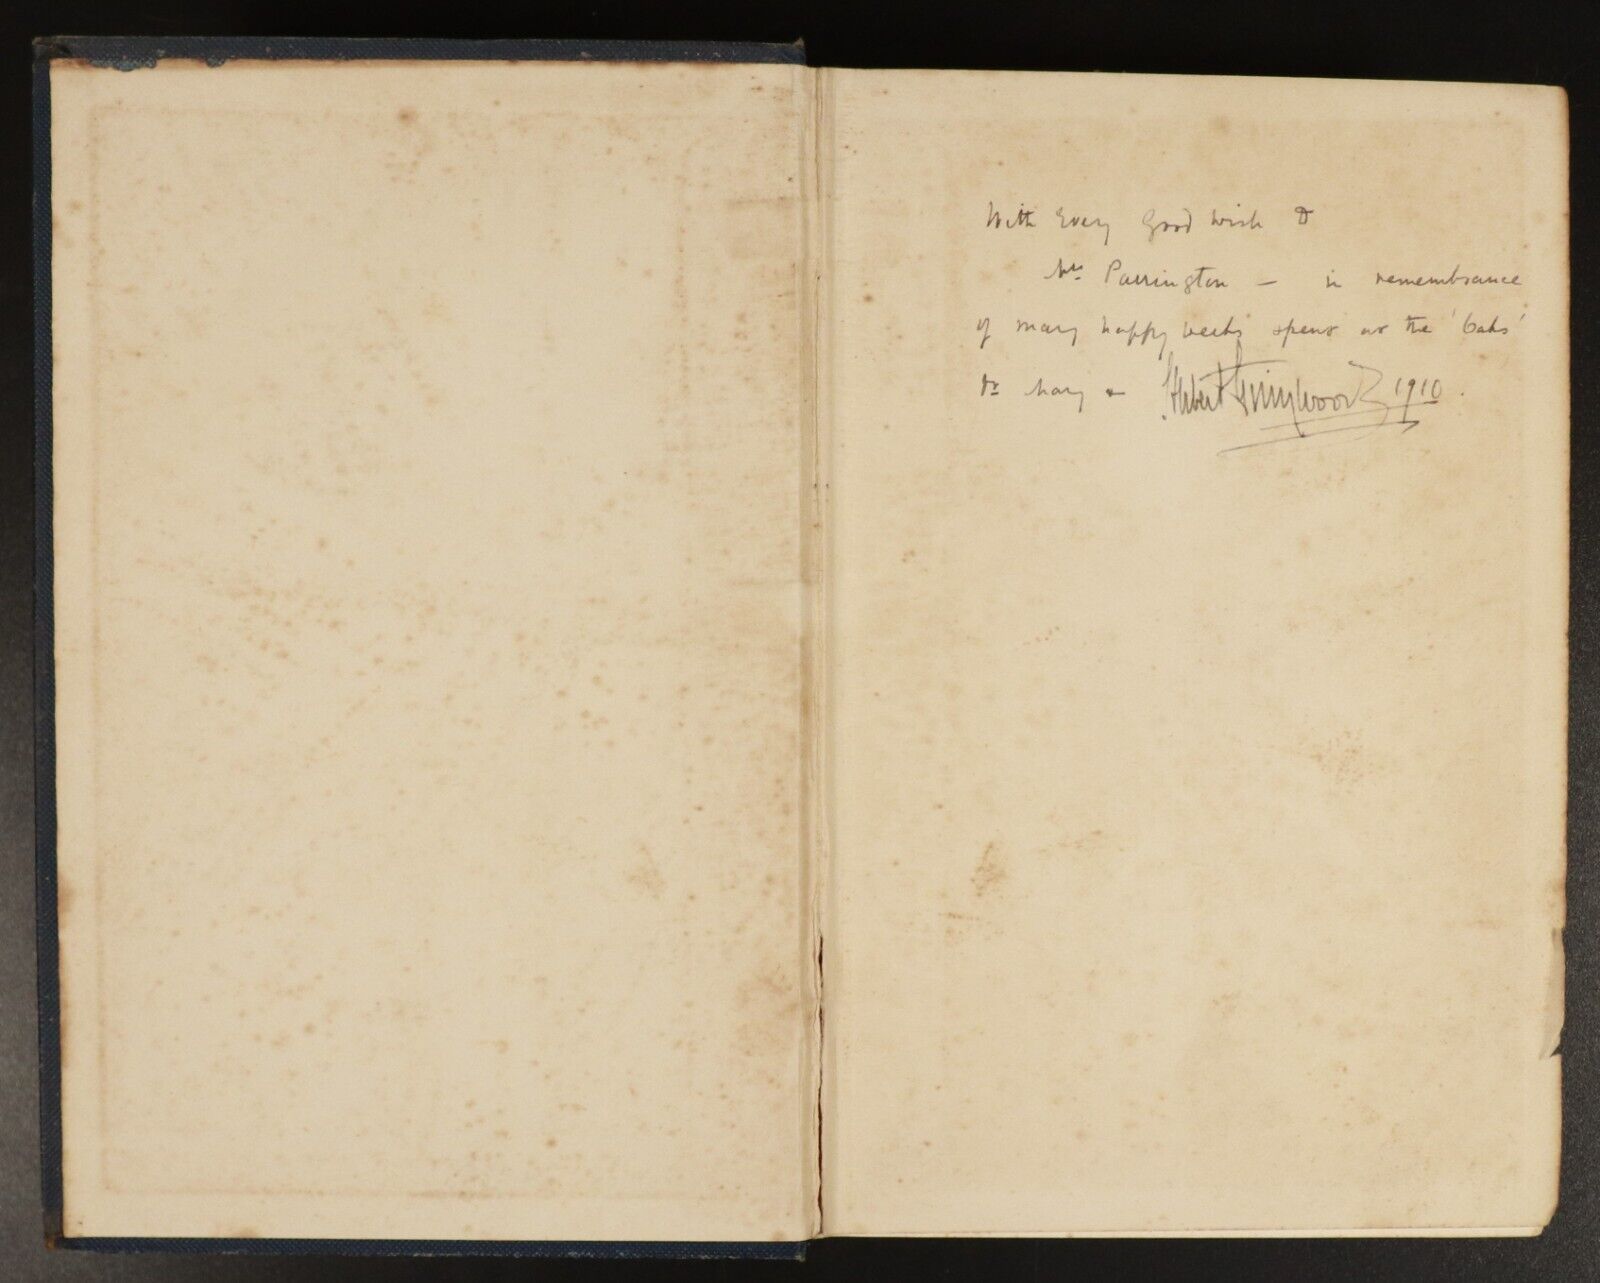 With Every Good Wish to
Mrs. Parrington — in remembrance
of many happy weeks spent at the 'Oaks'
Herbert Grimwood 1910.